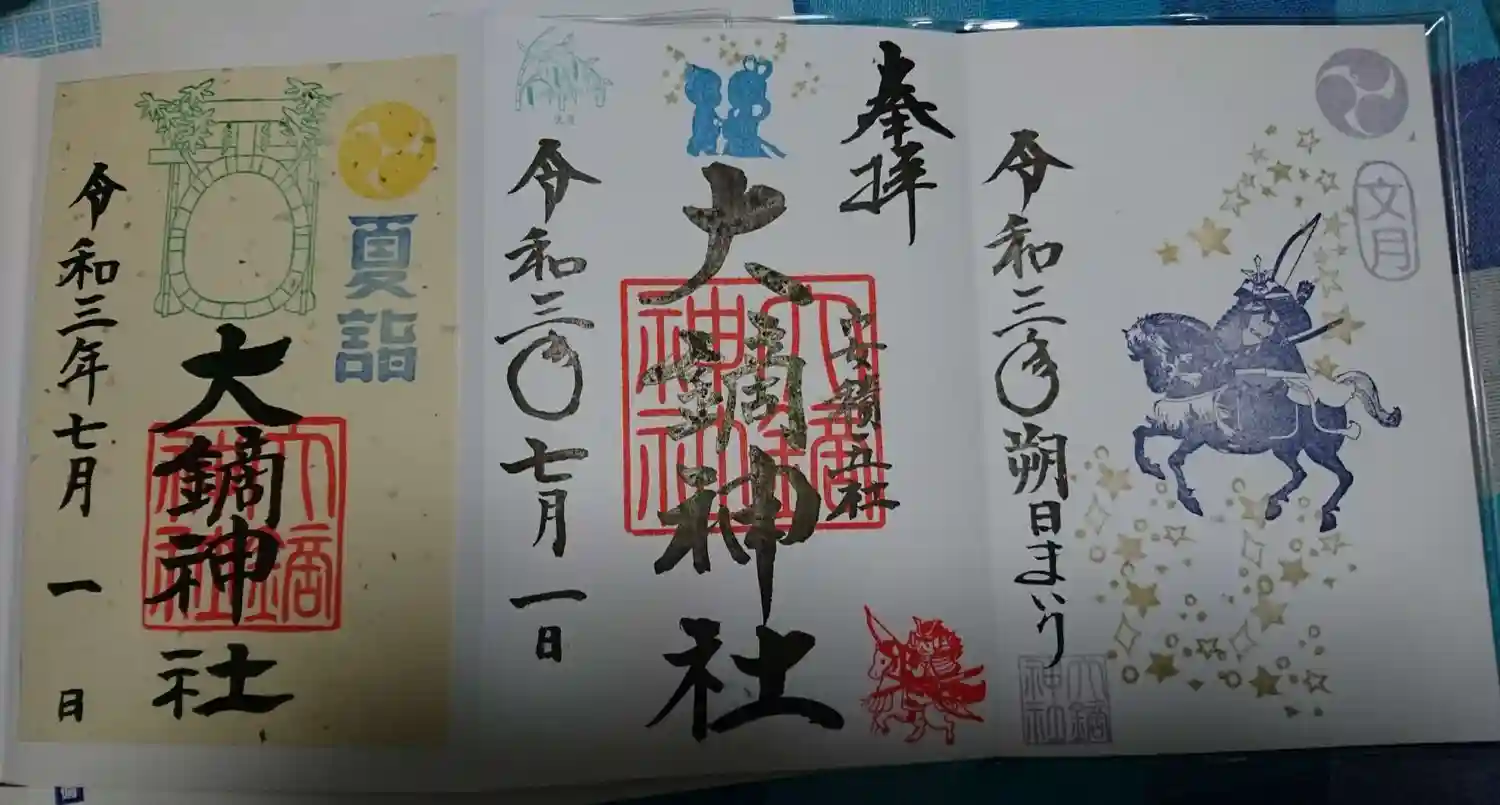 文月
令和三年朔日まいり
大鏑
神社
奉拝
安積五社
大鏑神社
大鏑
神社
令和三年七月一日
夏詣
大鏑神社
大鏑
神社
令和三年七月一日